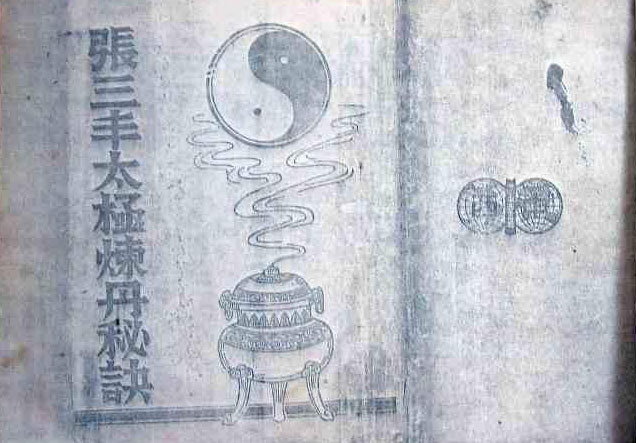 張三丰太極煉丹秘訣